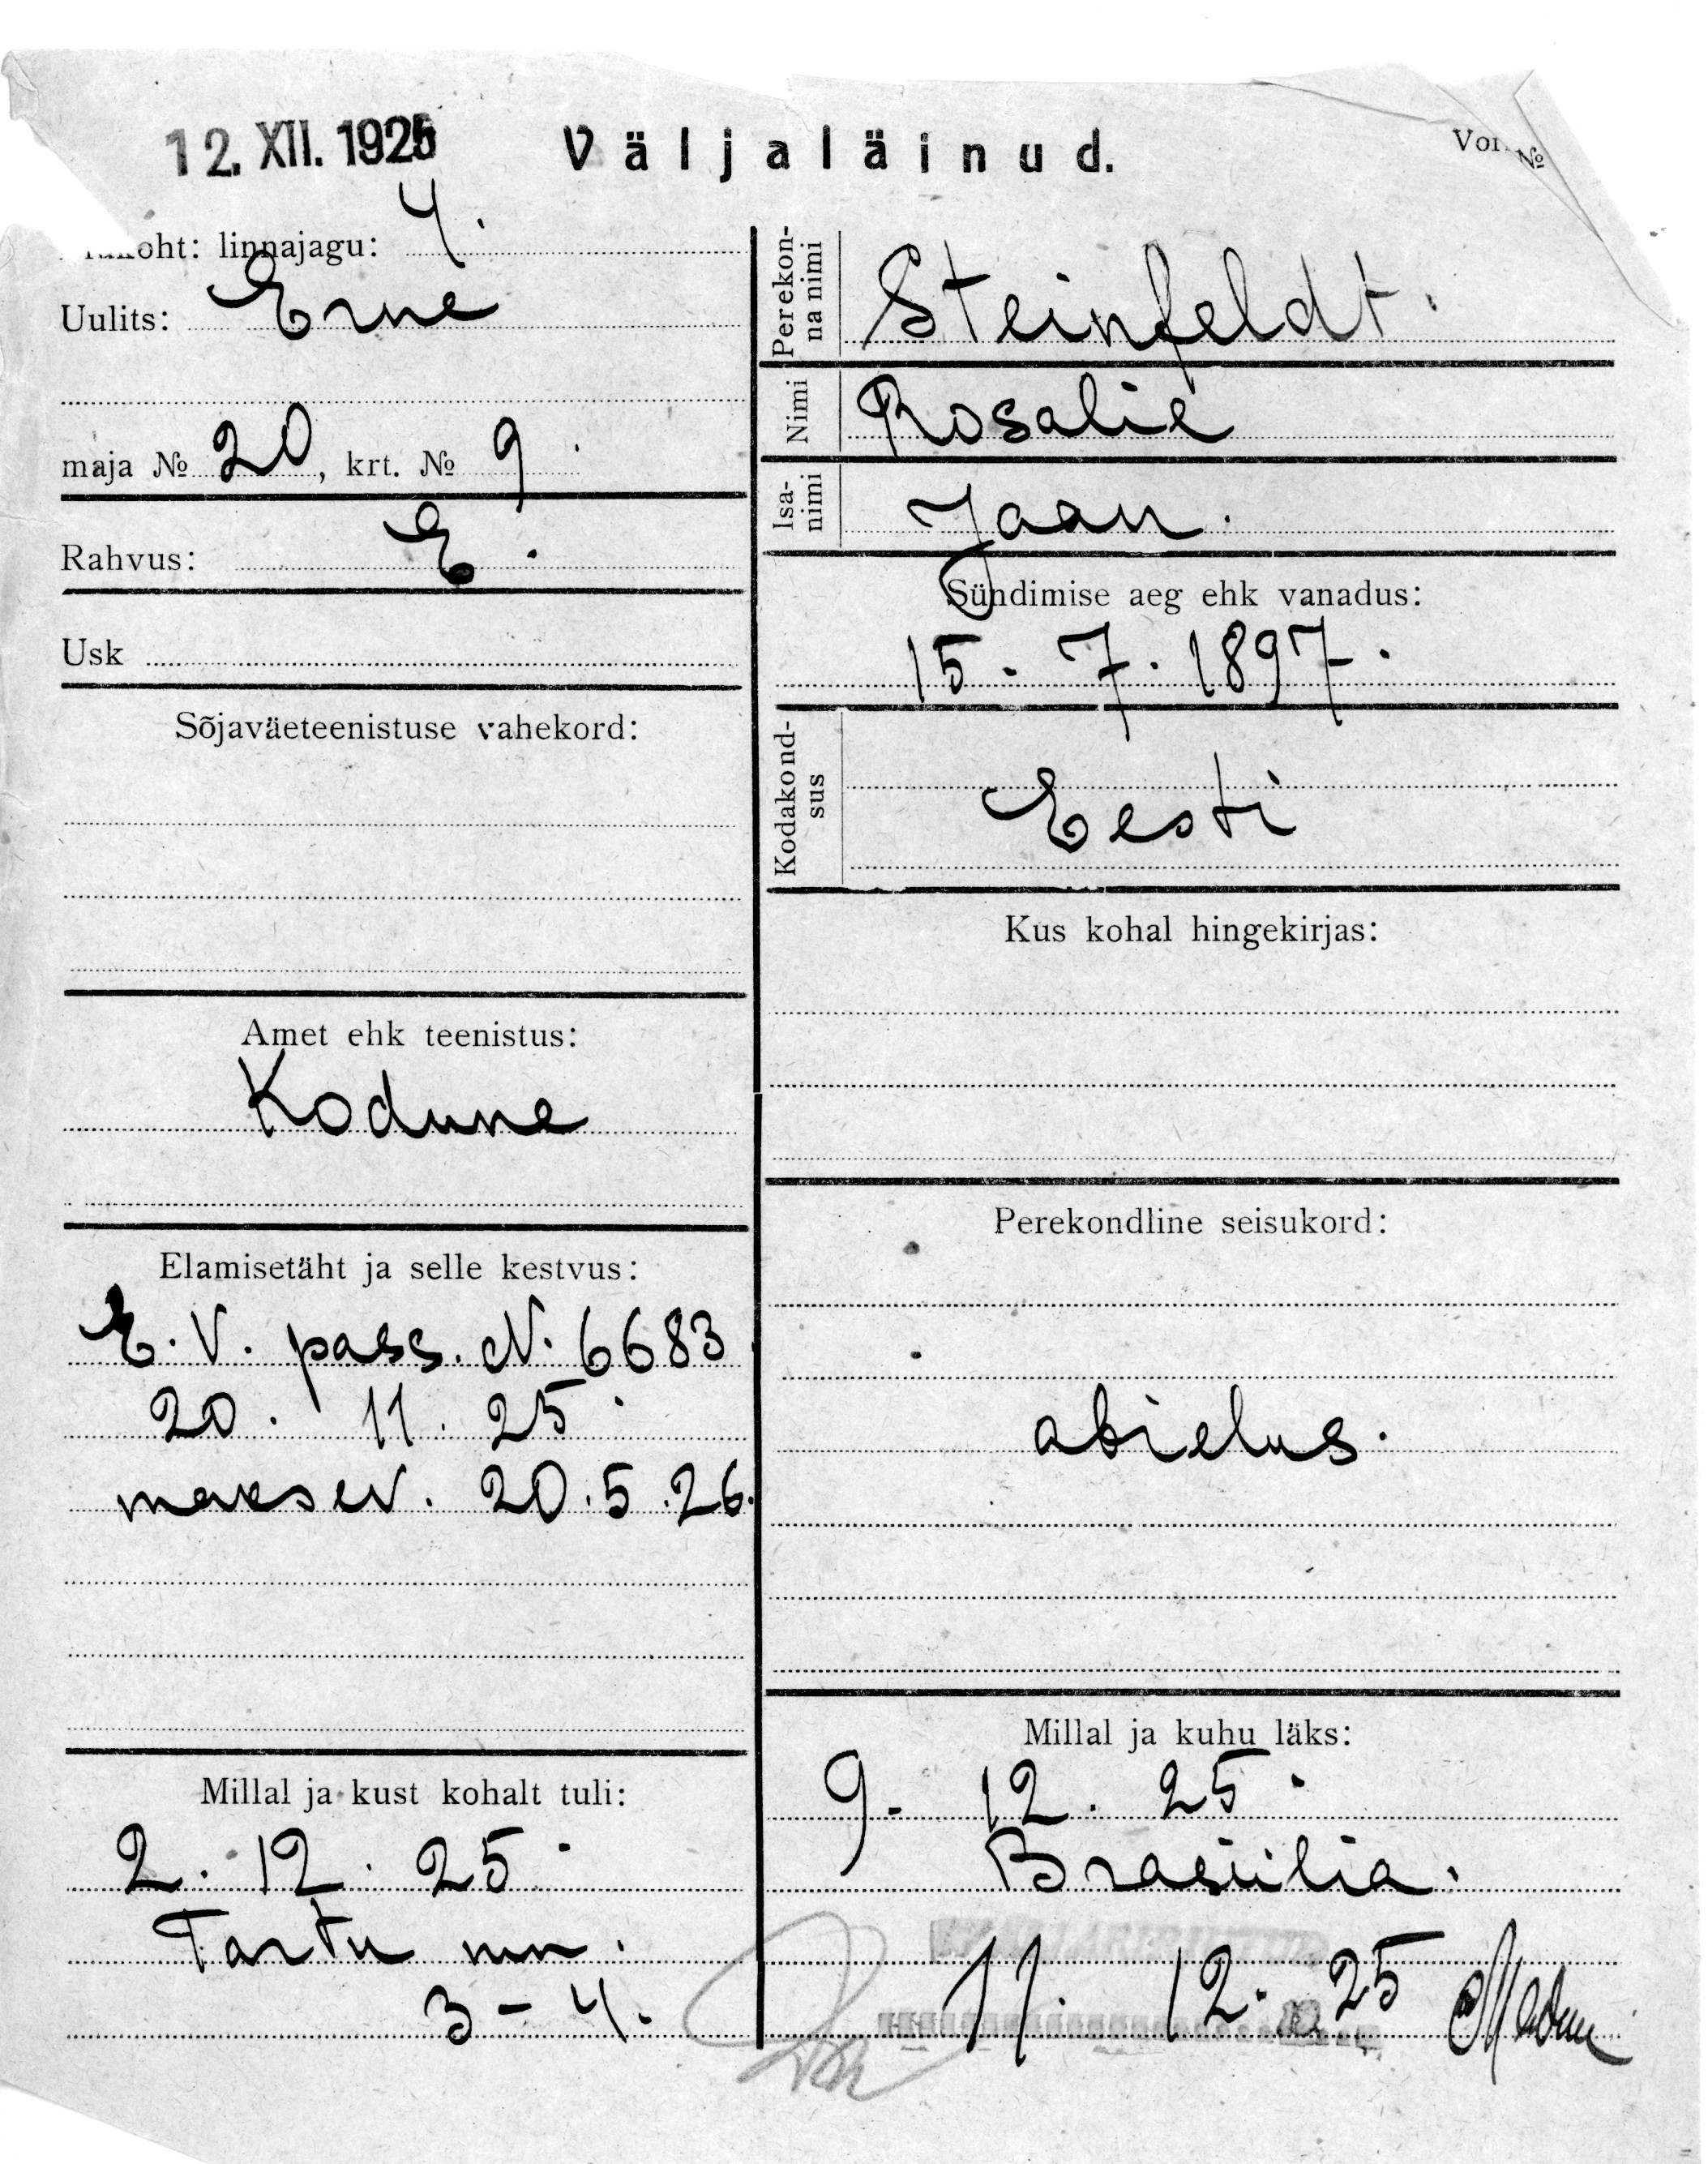 12. XII. 1925
Väljaläinud.
№
oht: linnajagu: 4.
Uulits: Erne
maja № 20, krt. № 9.
Rahvus: E.
Usk
Sõjaväeteenistuse vahekord:
Amet ehk teenistus:
Kodune
Elamisetäht ja selle kestvus:
E. V. pass. N. 6683
20. 11. 25.
maksev. 20.5.26.
Millal ja kust kohalt tuli:
2. 12. 25.
Tartu mn.
3 – 4.
Perekonna nimi Steinfeldt.
Nimi Rosalie
Isanimi Jaan.
Sündimise aeg ehk vanadus:
15. 7. 1897.
Kodakondsus Eesti
Kus kohal hingekirjas:
Perekondline seisukord:
abielus.
Millal ja kuhu läks:
9. 12. 25.
Brasiilia.
11. 12. 25